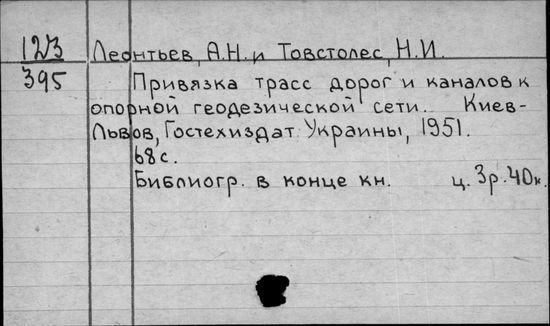 123 Леонтьев, А.Н. и Товстолес, Н.И.
395 Привязка трасс дорог и каналов к
опорной геодезической сети. Киев-
Львов, Гостехиздат Украины, 1951.
68с.
Библиогр. в конце кн. ц. 3р.40к.